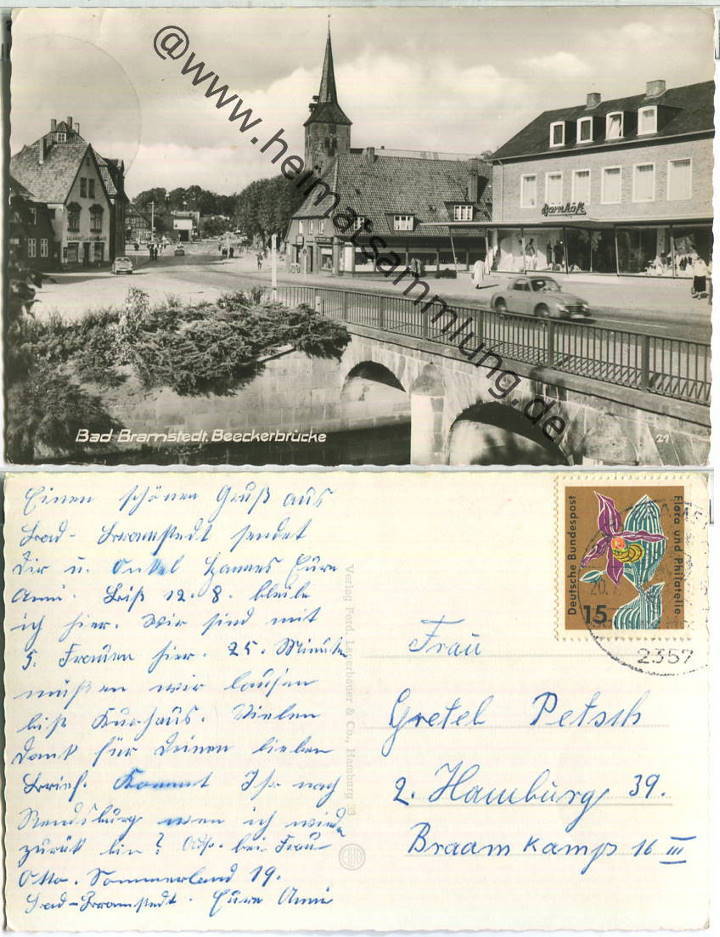 @www.heimatsammlung.de
Barnhöft
Bad Bramstedt, Beeckerbrücke
21
Einen schönen Gruß aus
Bad-Bramstedt sendet
Dir u. Onkel Hannes Eure
Anni. Bis 12.8. bleibe
ich hier. Wir sind mit
5 Frauen hier. 25. Minuten
müßen wir laufen
bis Kurhaus. Vielen
Dank für Deinen lieben
Brief. Kommt Ihr nach
Rendsburg wen ich wieder
zurük bin? Adr. bei Frau
Otto. Sommerland 19.
Bad-Bramstedt. Eure Anni
Verlag Ferd. Lagerbauer & Co., Hamburg
Deutsche Bundespost
Flora und Philatelie
15
20.
2357
Frau
Gretel Petsch
2. Hamburg 39.
Braamkamp 16 III